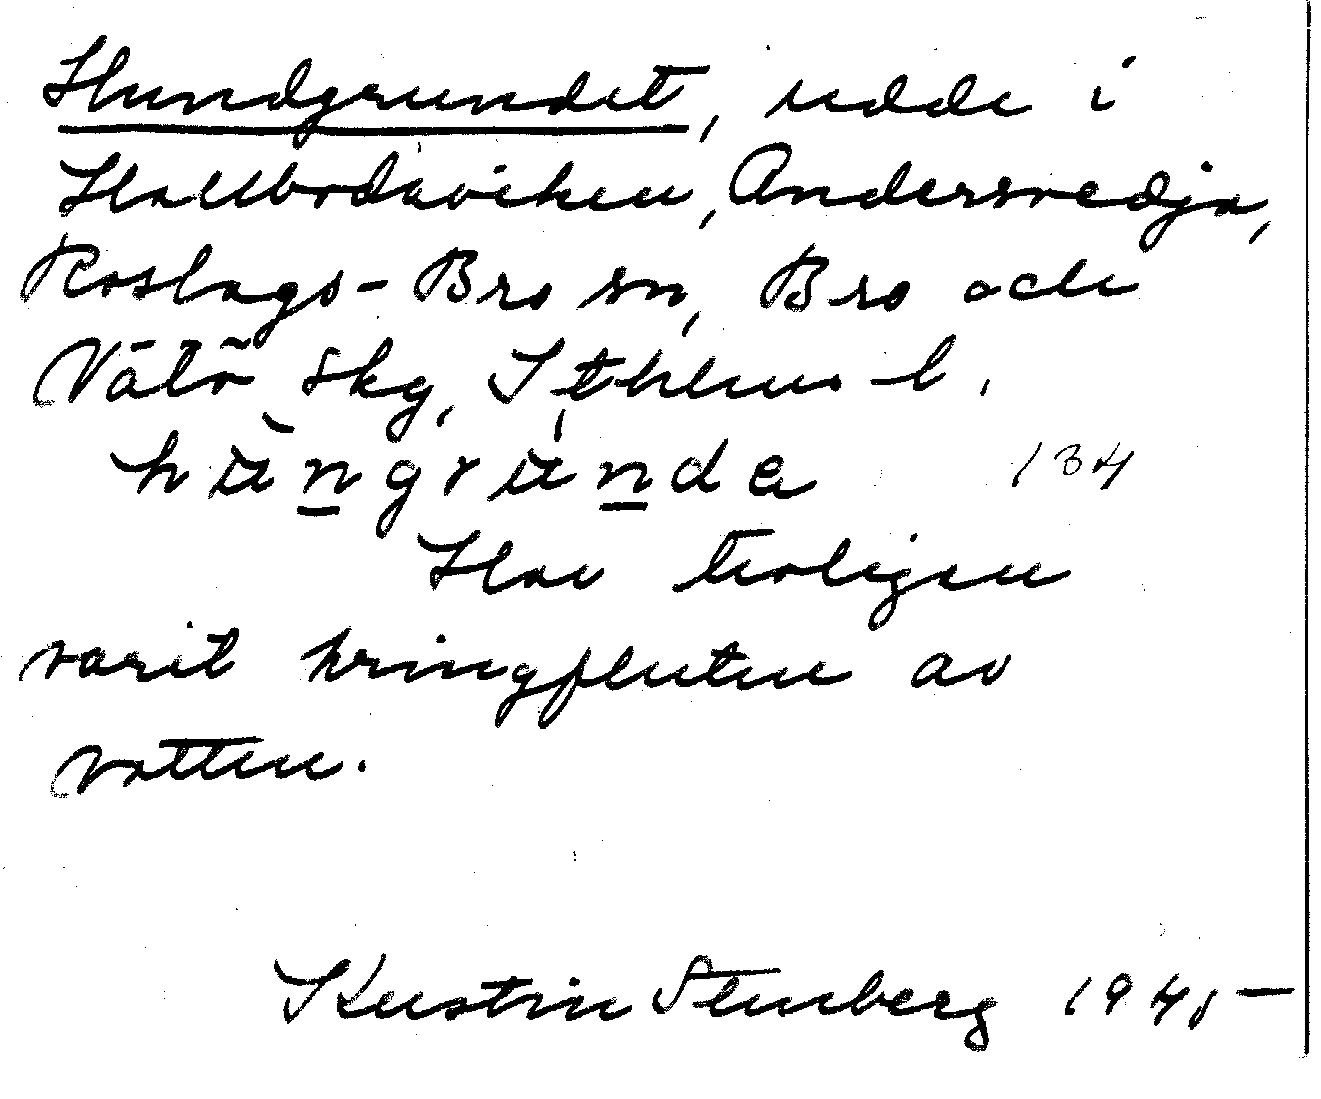 Hundgrundet, udde i
Hallbodaviken, Andersvedja,
Roslags-Bro sn, Bro och
Vätö skg, Sthlms l.
hùngrunda 134
Har troligen
varit kringfluten av
vatten.
Kerstin Stenberg 1945